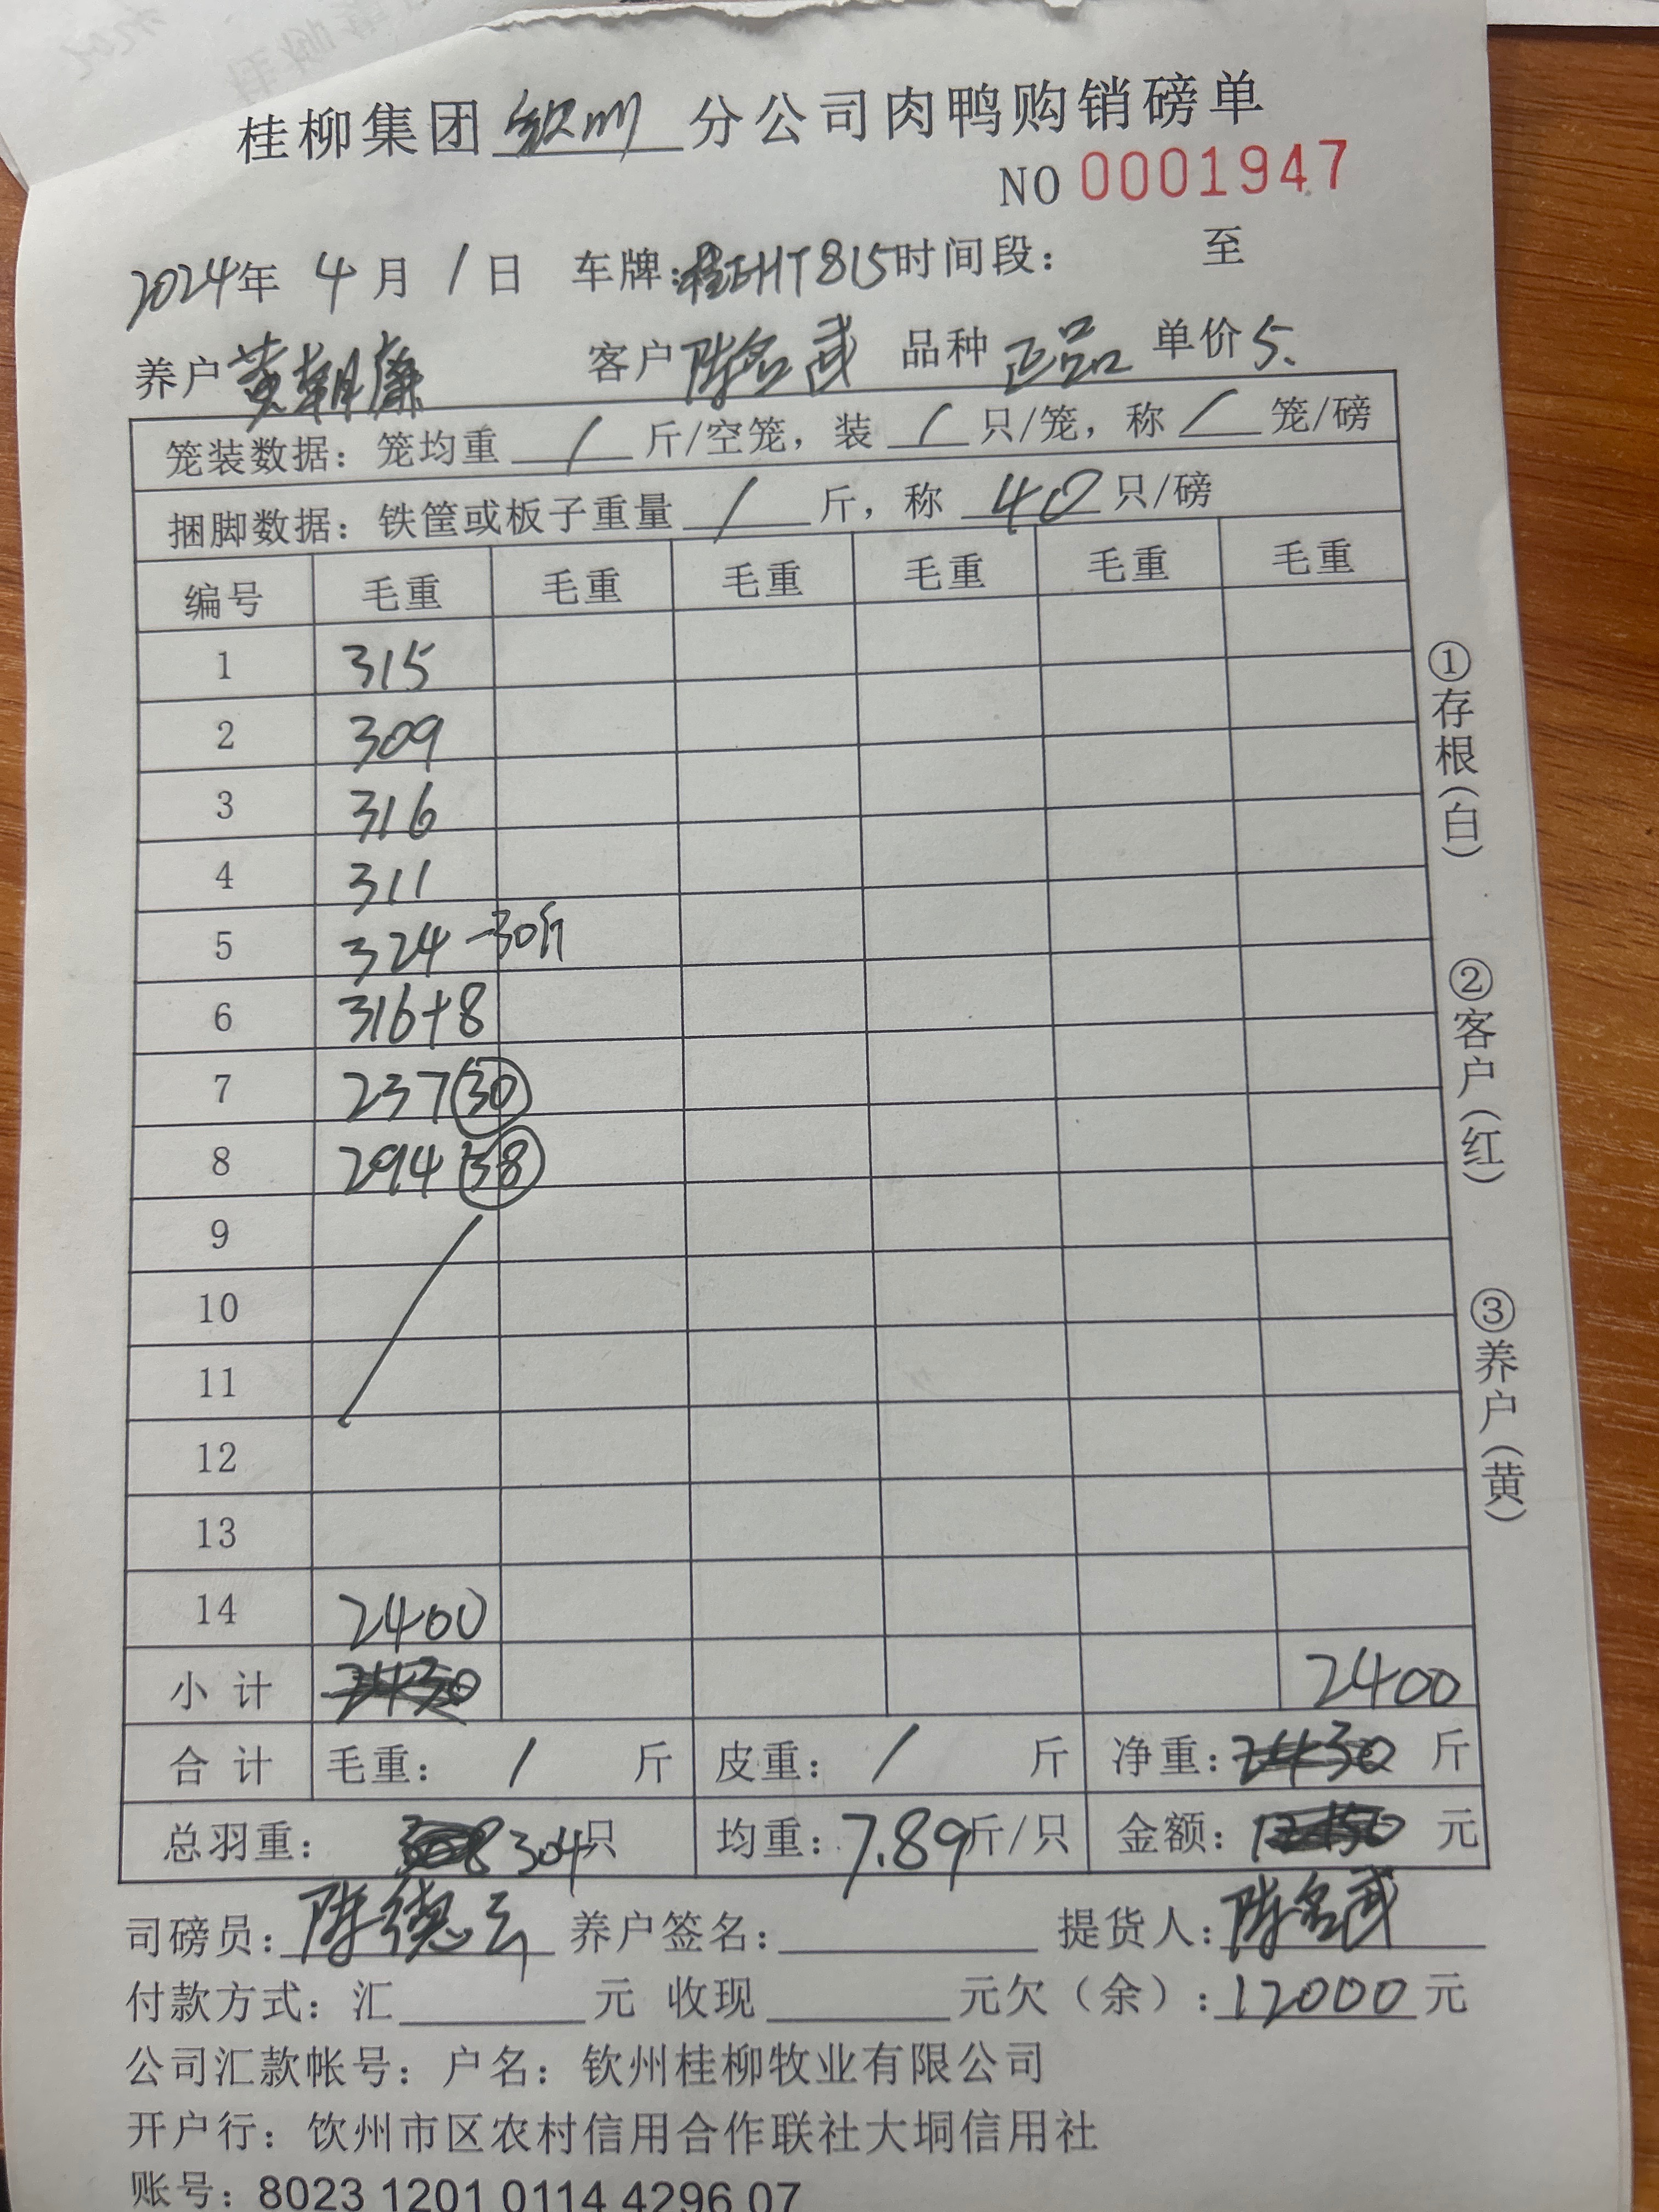 桂柳集团钦州分公司肉鸭购销磅单
NO 0001947
2024年 4月 1日 车牌:桂EHT815时间段: 至
养户黄朝廉 客户陈名武 品种正品 单价5.
笼装数据:笼均重 / 斤/空笼,装 / 只/笼,称 / 笼/磅
捆脚数据:铁筐或板子重量 / 斤,称 40 只/磅
编号 毛重 毛重 毛重 毛重 毛重 毛重
1 315
2 309
3 316
4 311
5 324 -30斤
6 316+8
7 237 30
8 294 38
9
10
11
12
13
14 2400
小计 2430 2400
合计 毛重: / 斤 皮重: / 斤 净重:2430 斤
总羽重: 308 304只 均重:7.89斤/只 金额:12150 元
司磅员:陈德云 养户签名: 提货人:陈名武
付款方式:汇 元 收现 元欠(余):12000元
公司汇款帐号:户名:钦州桂柳牧业有限公司
开户行:钦州市区农村信用合作联社大垌信用社
账号:8023 1201 0114 4296 07
①存根(白)
②客户(红)
③养户(黄)